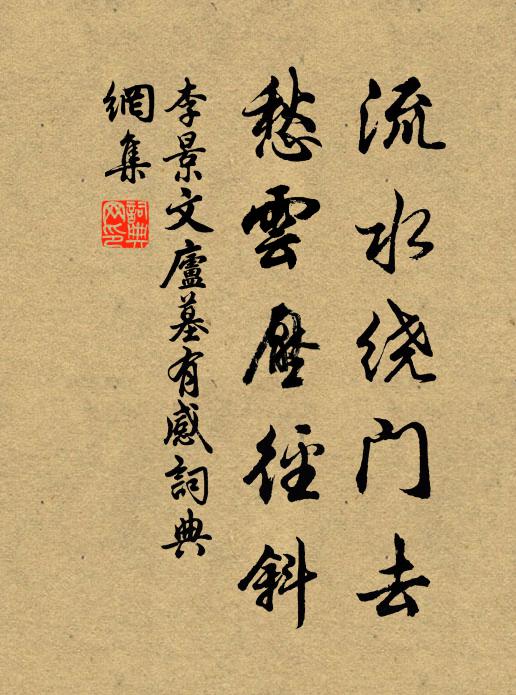 流水绕门去
愁雲壓徑斜
李景文廬墓有感詞典
網集
詞典
网印